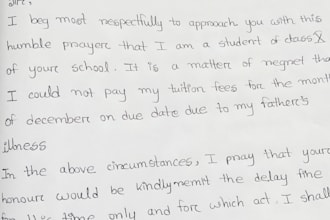 Sir,
I beg most respectfully to approach you with this
humble prayer that I am a student of class X
of your school. It is a matter of regret tha
I could not pay my tuition fees for the month
of december on due date due to my father's
illness
In the above circumstances, I pray that your
honour would be kindly remit the delay fine
time only and for which act. I shall